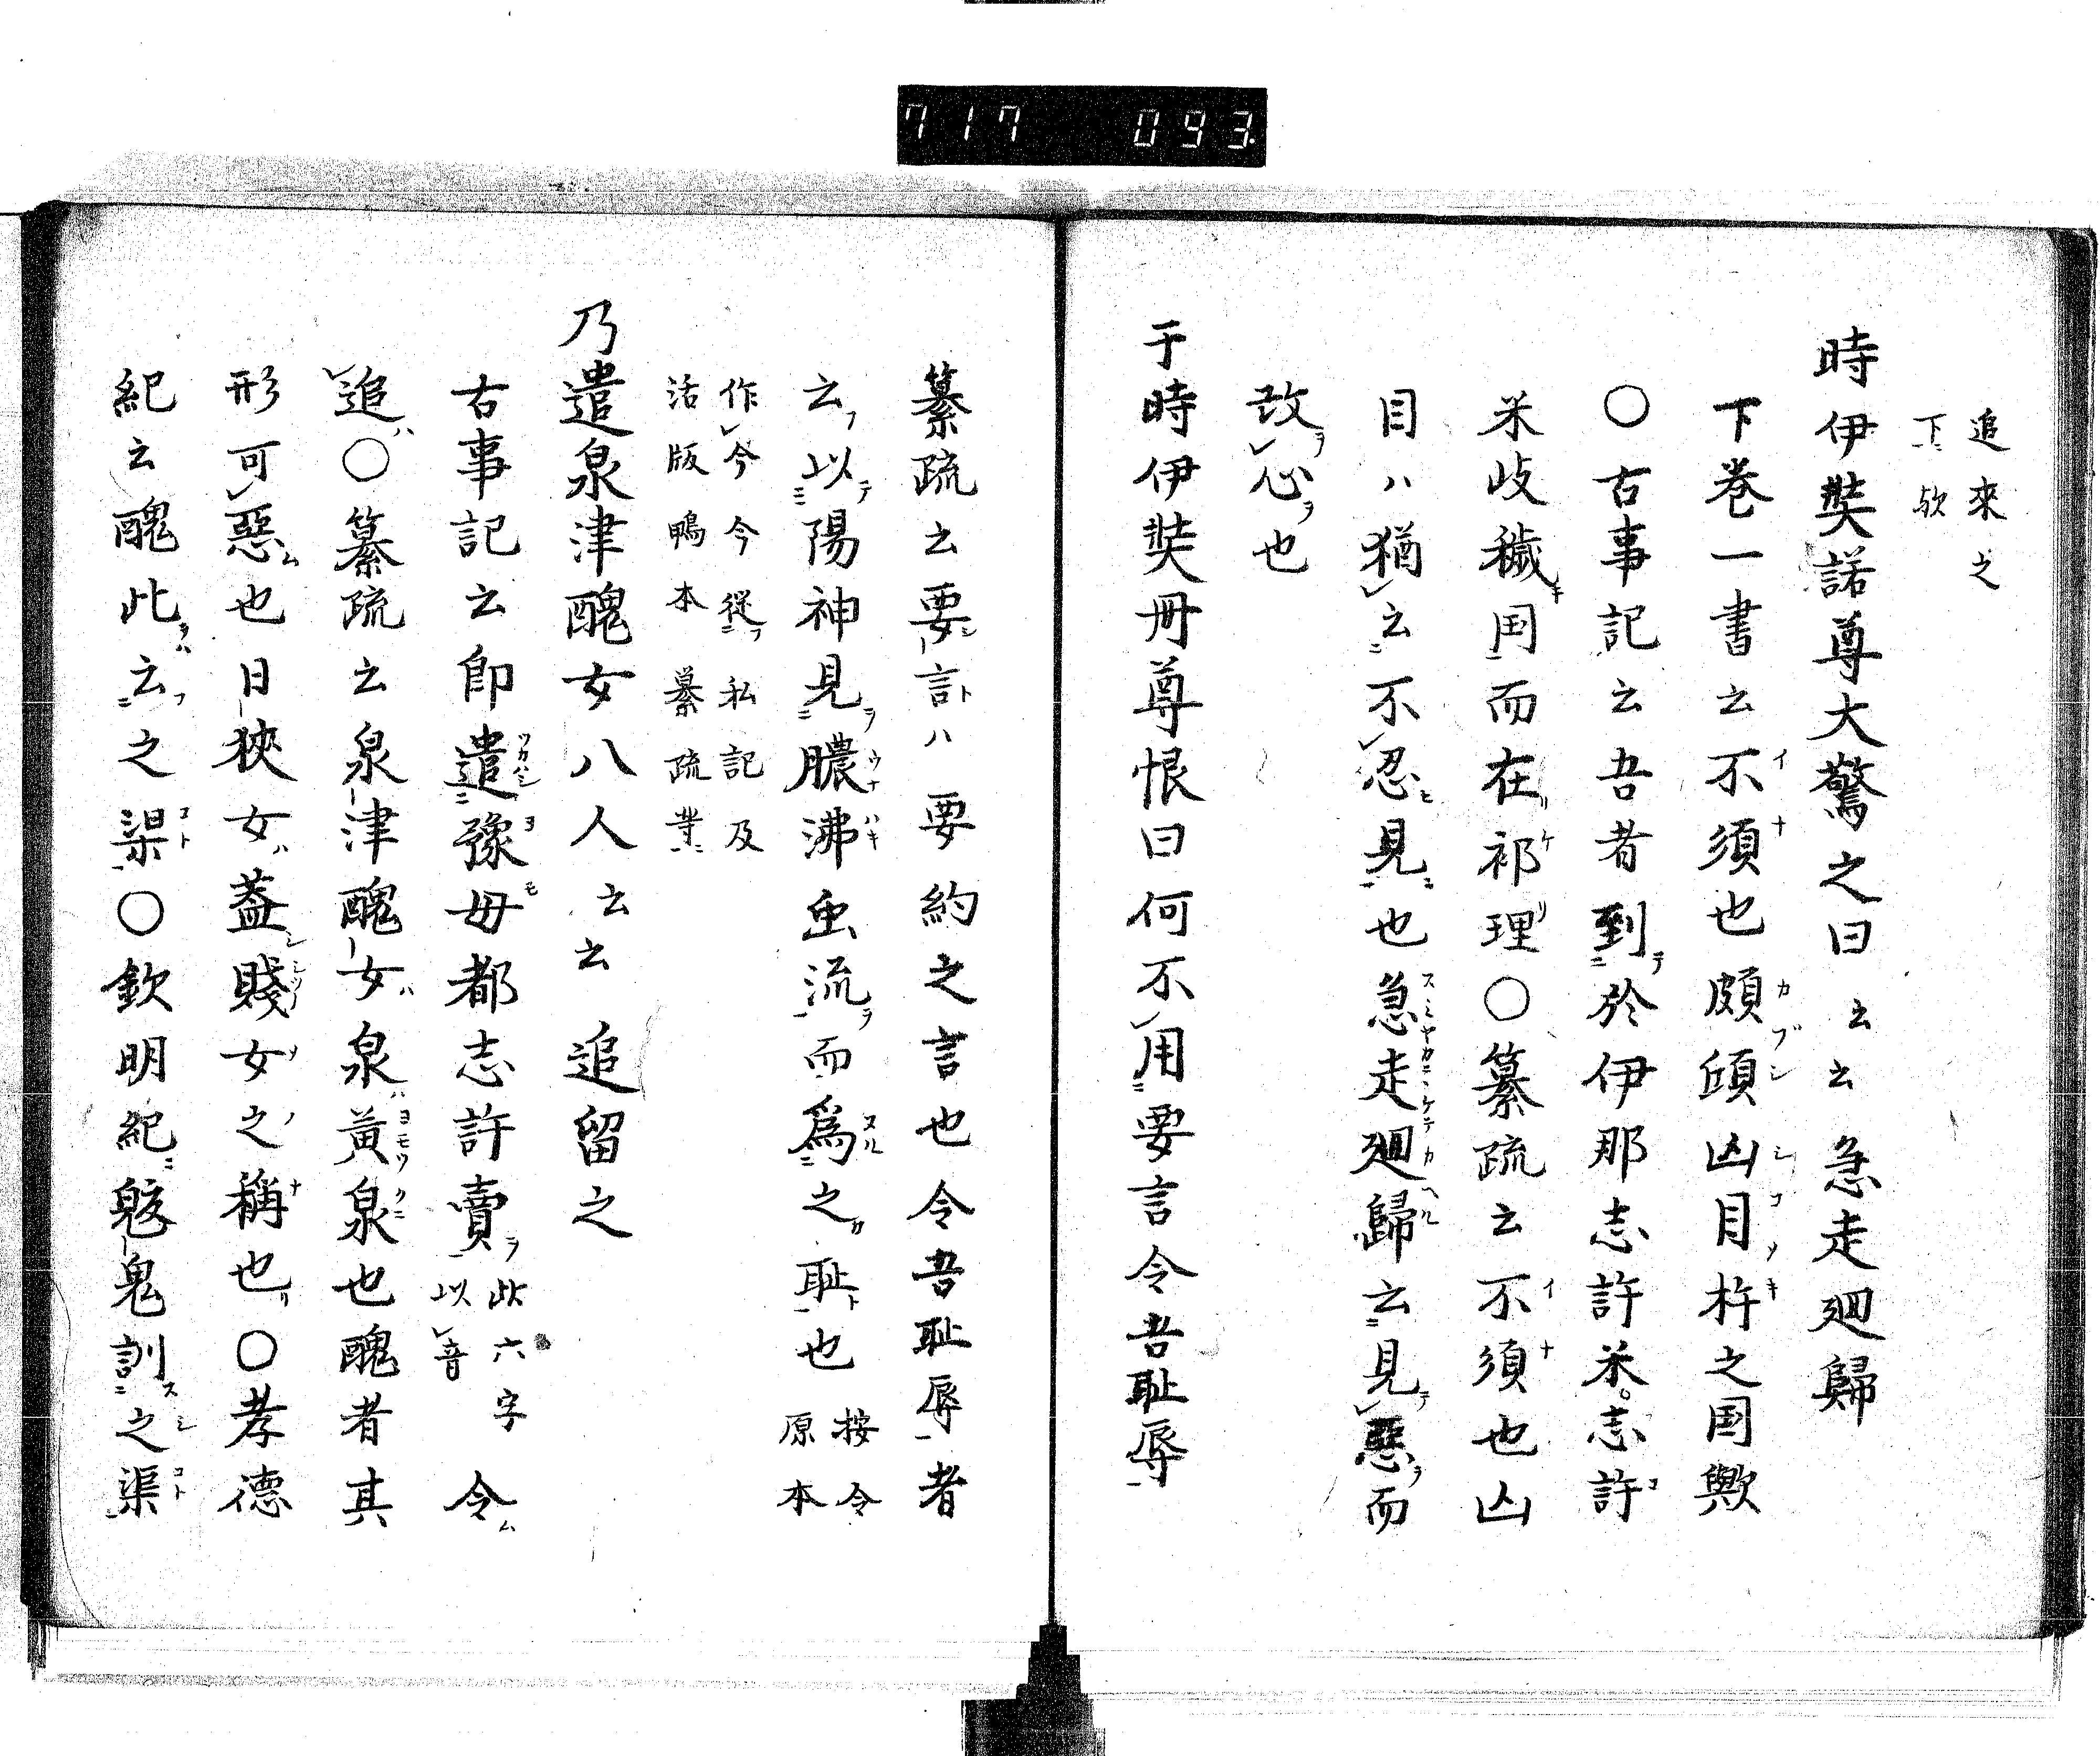 717 093
追來之
下欤
時伊奘諾尊大驚之曰云云急走廻歸
下巻一書云不須也頗傾凶目杵之国歟
〇古事記云吾者到於伊那志許米志許
米岐穢国而在祁理〇纂疏云不須也凶
目ハ猶云不忍見也急走廻歸云見惡而
改心也
于時伊奘冊尊恨曰何不用要言令吾耻辱
纂疏云要言ハ要約之言也令吾耻辱者
云以陽神見膿沸虫流而為之耻也 按令
原本
作今今從私記及
活版鴨本纂疏業
乃遣泉津醜女八人云云 追留之
古事記云卽遣豫毋都志許賣 此六字
以音 令
追〇纂疏云泉津醜女泉黄泉也醜者其
形可惡也日狹女蓋賤女之稱也〇孝德
紀云醜此云之渠〇欽明紀魃鬼訓之渠